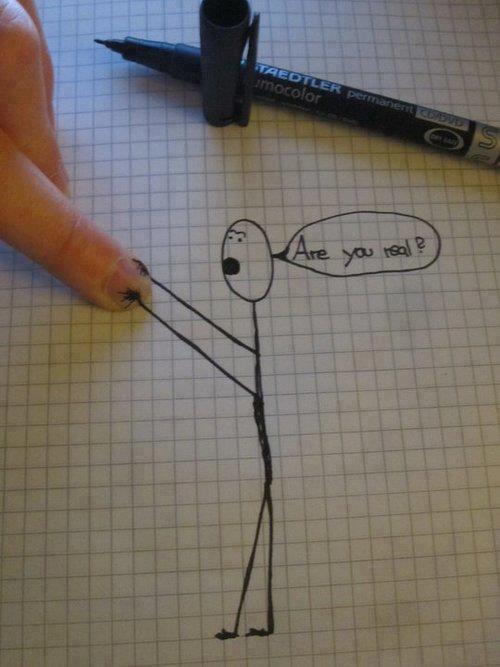 STAEDTLER permanent CD/DVD
umocolor
Are you real?